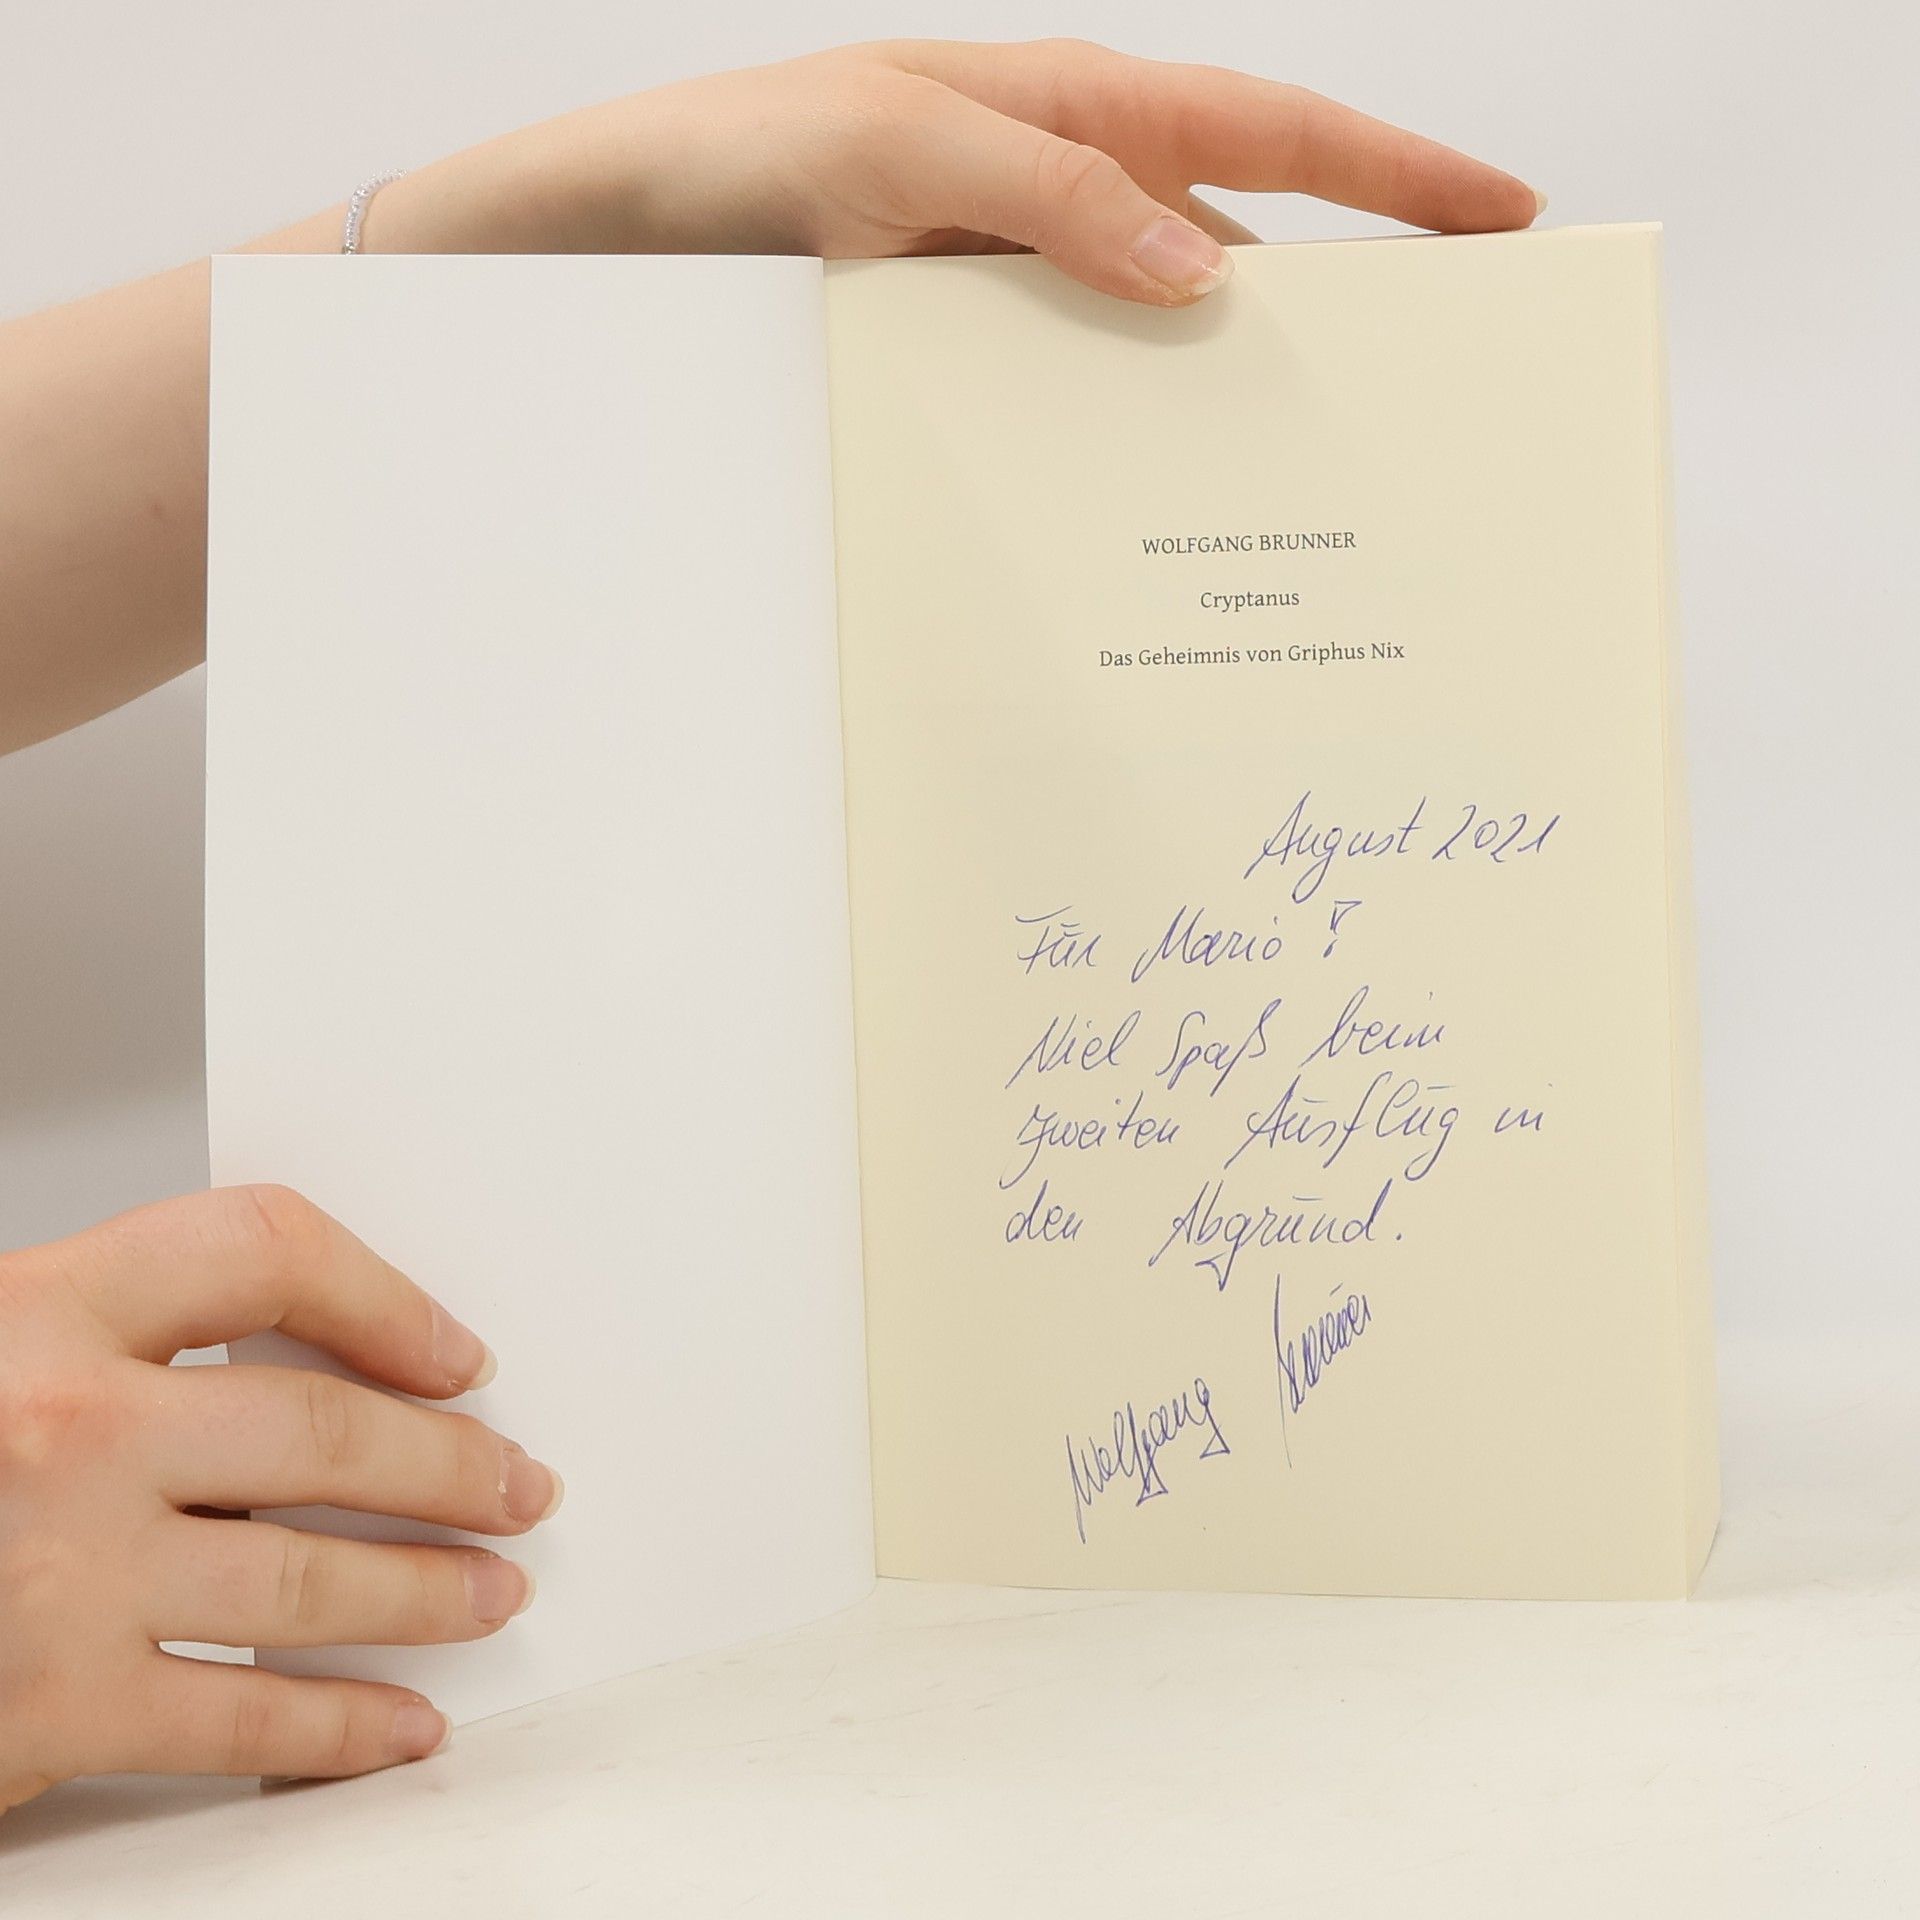 WOLFGANG BRUNNER
Cryptanus
Das Geheimnis von Griphus Nix
August 2021
Für Mario!
Viel Spaß beim
zweiten Ausflug in
den Abgrund.
Wolfgang Brunner